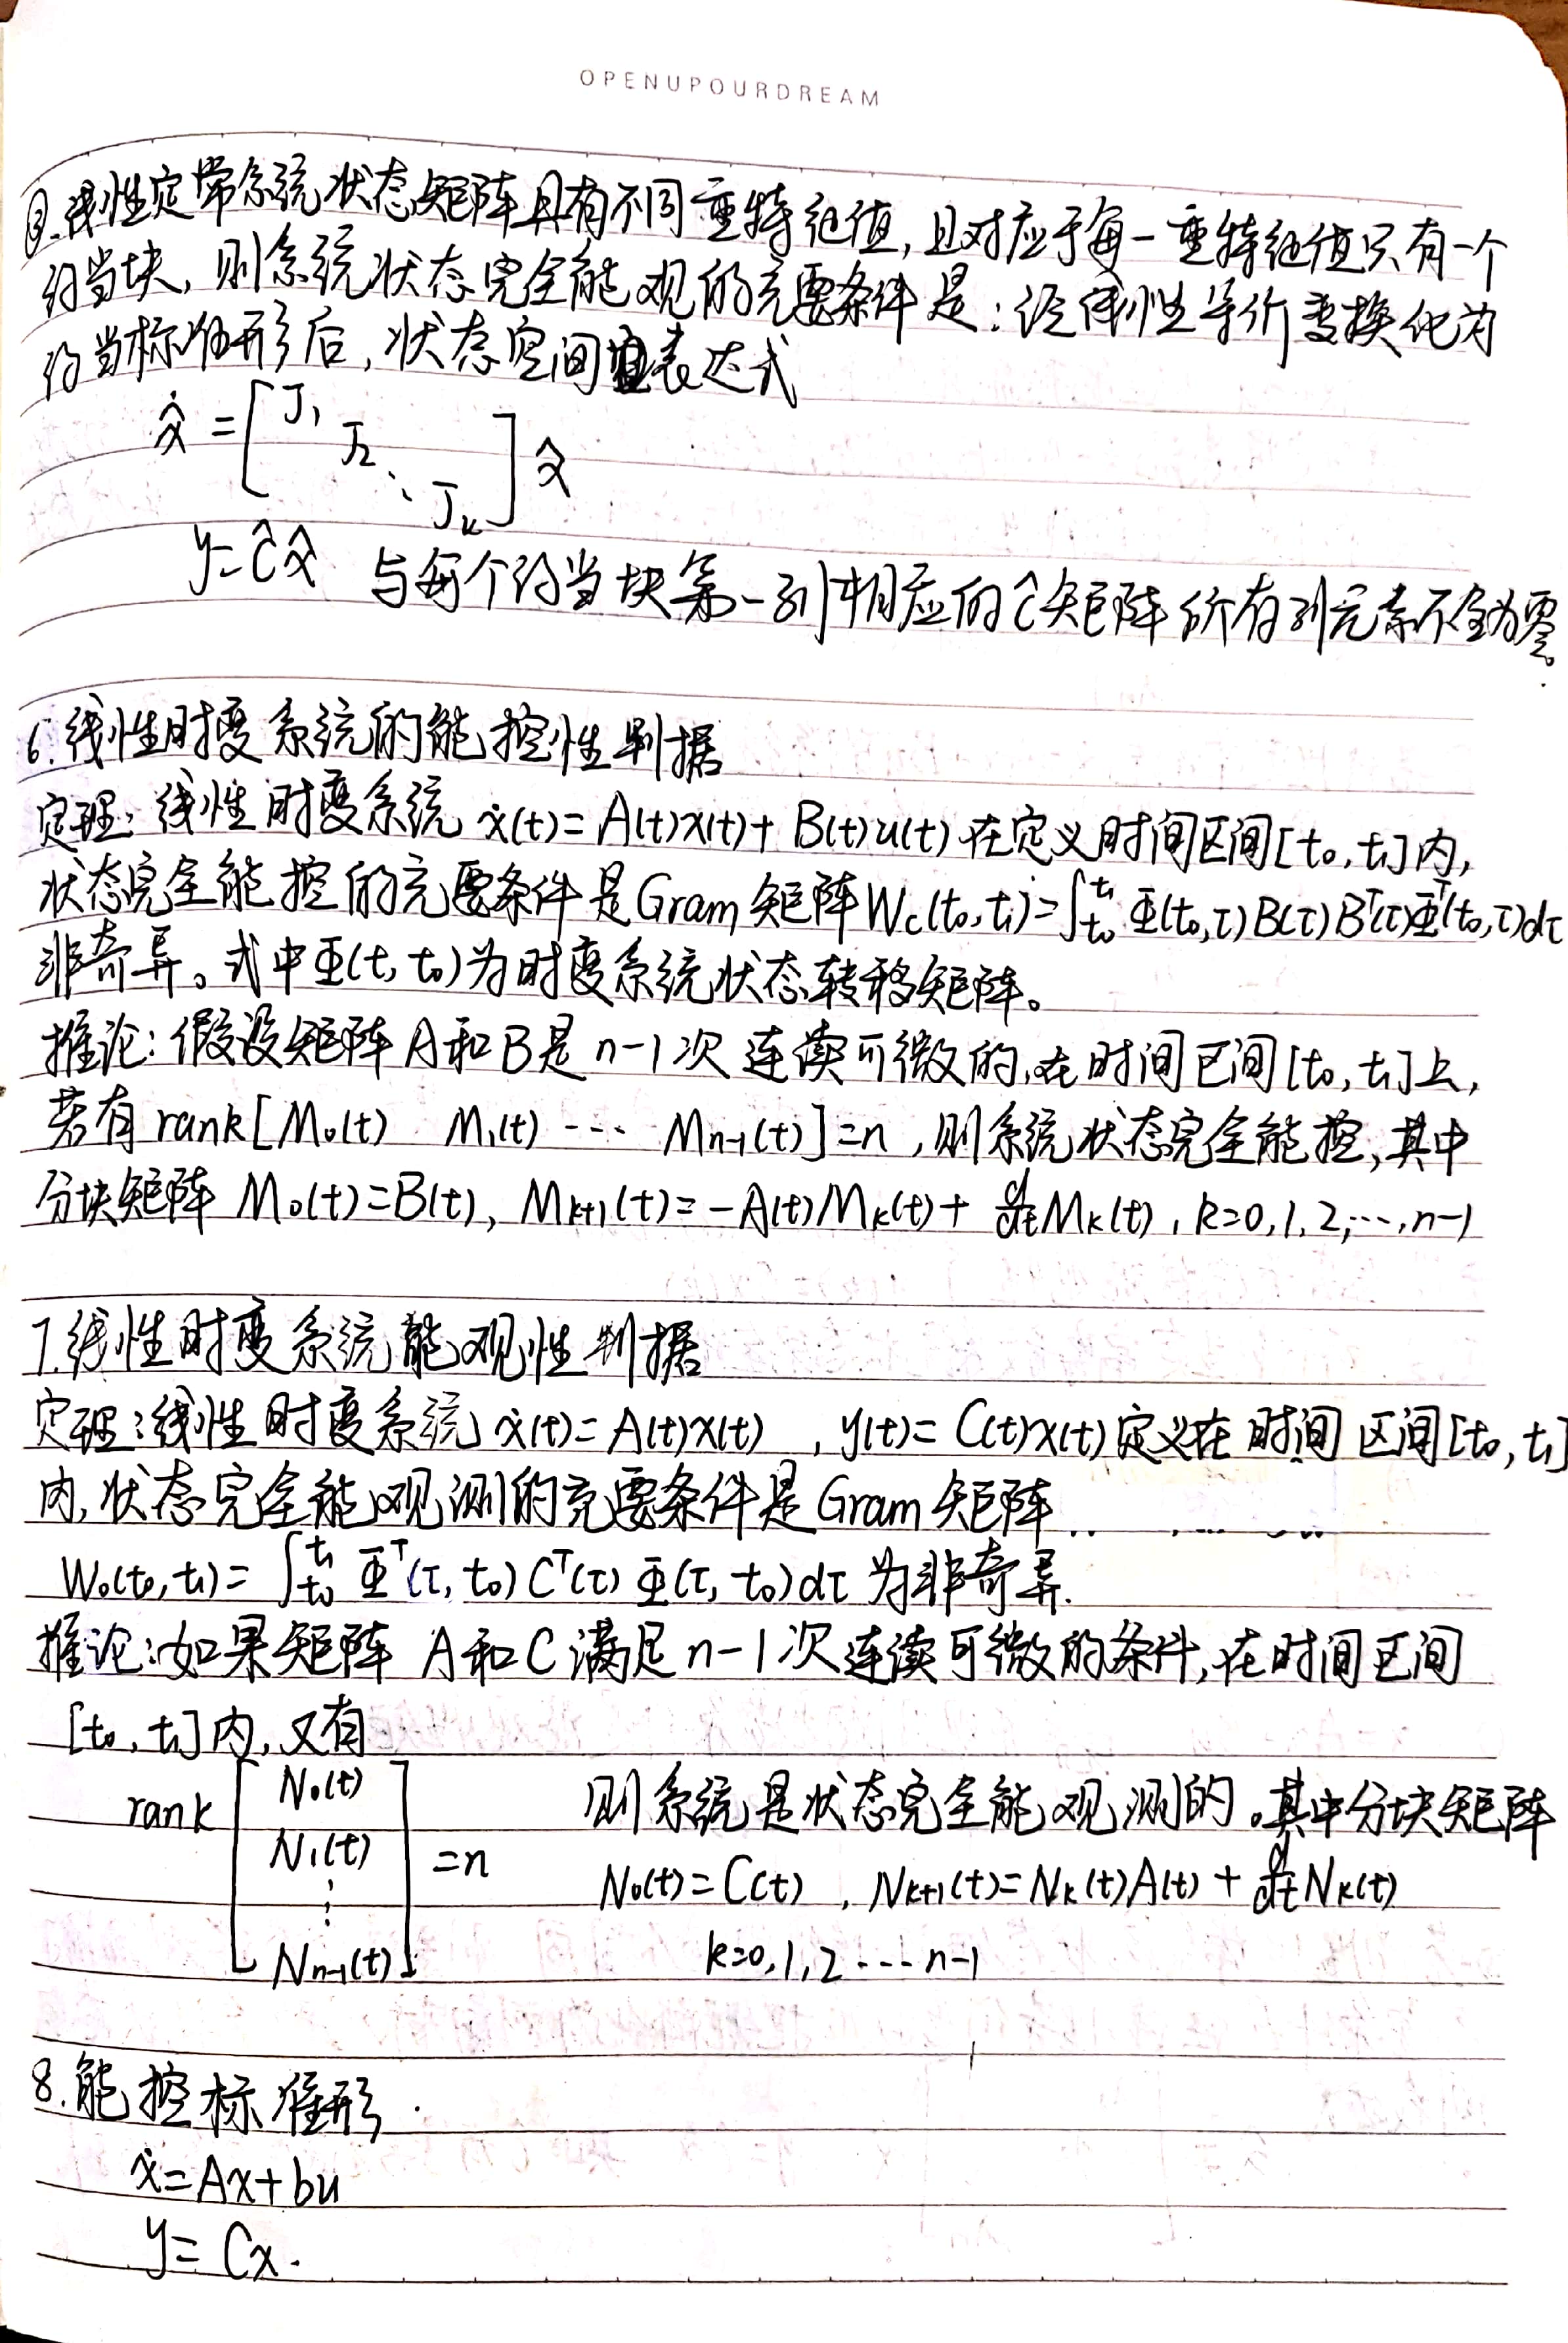 OPENUPOURDREAM
③.线性定常系统状态矩阵具有不同重特征值,且对应于每一重特征值只有一个
约当块,则系统状态完全能观的充要条件是:经线性等价变换化为
约当标准形后,状态空间表达式
\dot{\hat{x}} = [J₁ J₂ ⋱ Jₖ] \hat{x}
y=ĈX̂ 与每个约当块第一列相应的Ĉ矩阵所有列元素不全为零。
6.线性时变系统的能控性判据
定理:线性时变系统 ẋ(t)=A(t)x(t)+B(t)u(t)在定义时间区间[t₀,t₁]内,
状态完全能控的充要条件是Gram矩阵Wc(t₀,t₁)=∫_{t₀}^{t₁}Φ(t₀,τ)B(τ)Bᵀ(τ)Φᵀ(t₀,τ)dτ
非奇异。式中Φ(t,t₀)为时变系统状态转移矩阵。
推论:假设矩阵A和B是n-1次连续可微的,在时间区间[t₀,t₁]上,
若有rank[M₀(t) M₁(t) … Mₙ₋₁(t)]=n,则系统状态完全能控,其中
分块矩阵 M₀(t)=B(t), Mₖ₊₁(t)=-A(t)Mₖ(t)+d/dt Mₖ(t),k=0,1,2,…,n-1
7.线性时变系统能观性判据
定理:线性时变系统 ẋ(t)=A(t)x(t) ,y(t)=C(t)x(t)定义在时间区间[t₀,t₁]
内,状态完全能观测的充要条件是Gram矩阵
W₀(t₀,t₁)=∫_{t₀}^{t₁}Φᵀ(τ,t₀)Cᵀ(τ)Φ(τ,t₀)dτ为非奇异.
推论:如果矩阵A和C满足n-1次连续可微的条件,在时间区间
[t₀,t₁]内,又有
rank [N₀(t) N₁(t) ⋮ Nₙ₋₁(t)] =n
则系统是状态完全能观测的。其中分块矩阵
N₀(t)=C(t) ,Nₖ₊₁(t)=Nₖ(t)A(t)+d/dt Nₖ(t)
k=0,1,2…n-1
8.能控标准形.
ẋ=Ax+bu
y=Cx.